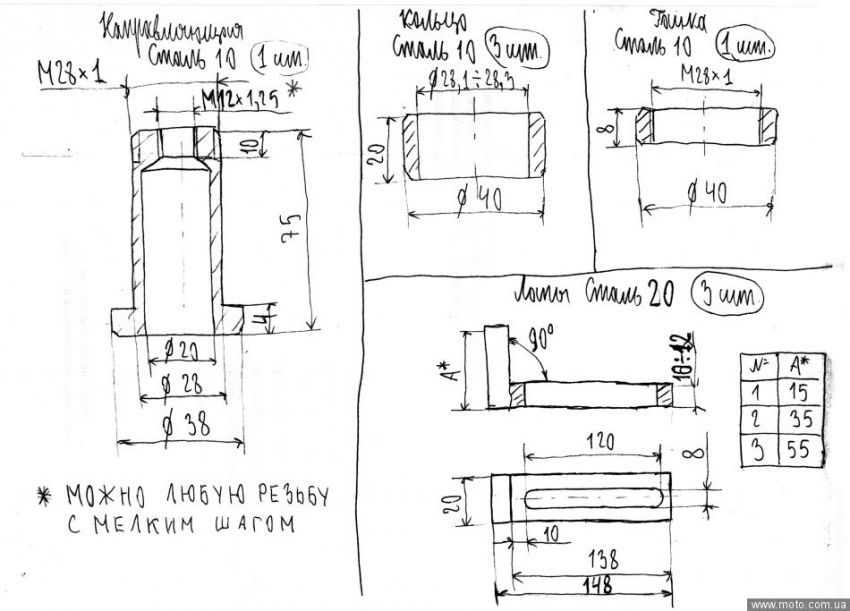 Направляющая
Сталь 10 1 шт.
M28×1
M12×1,25 *
10
75
4
ϕ20
ϕ28
ϕ38
* МОЖНО ЛЮБУЮ РЕЗЬБУ
С МЕЛКИМ ШАГОМ
Кольцо
Сталь 10 3 шт.
ϕ28,1÷28,3
20
ϕ40
Гайка
Сталь 10 1 шт.
M28×1
8
ϕ40
Лапы Сталь 20 3 шт.
A*
90°
10÷12
120
8
20
10
138
148
N= A*
1 15
2 35
3 55
www.moto.com.ua